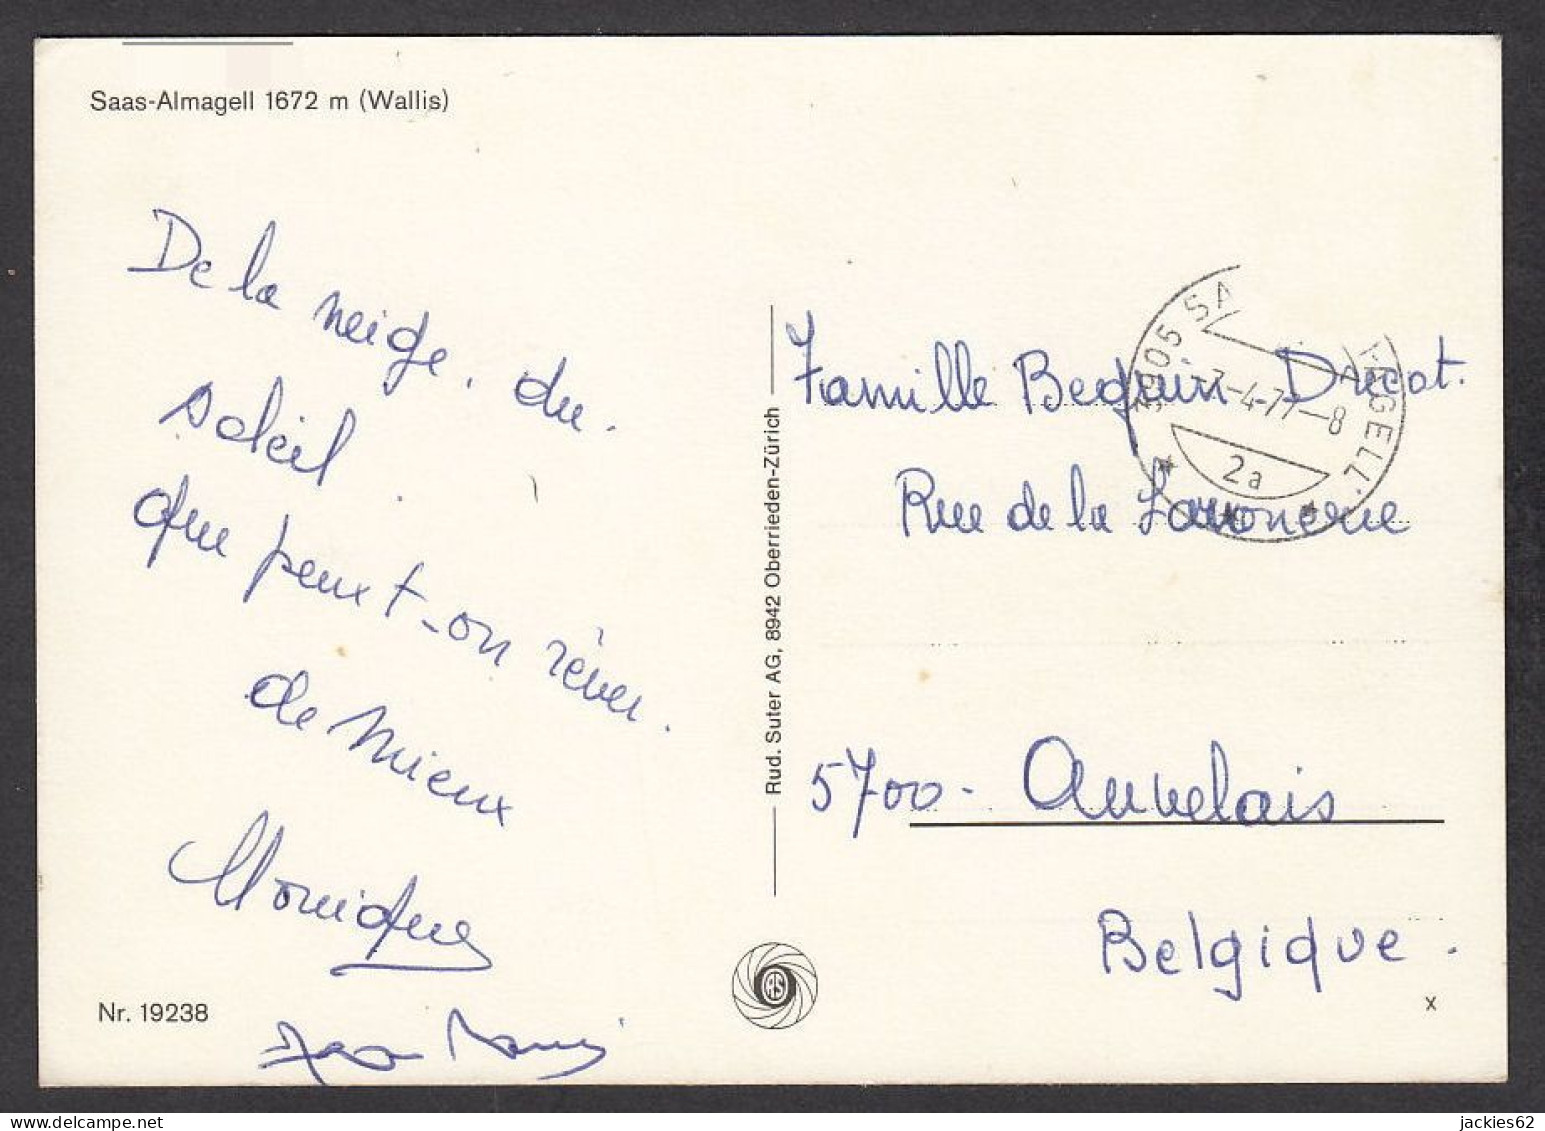 Saas-Almagell 1672 m (Wallis)
De la neige, du
soleil.
que peux t-on rêver.
de mieux
Monique
Nr. 19238
Rud. Suter AG, 8942 Oberrieden-Zürich
3905 SA AGELL
-4-77-8
2a
Famille Bequin Ducat.
Rue de la
5700- Auvelais
Belgique.
x
jackies62